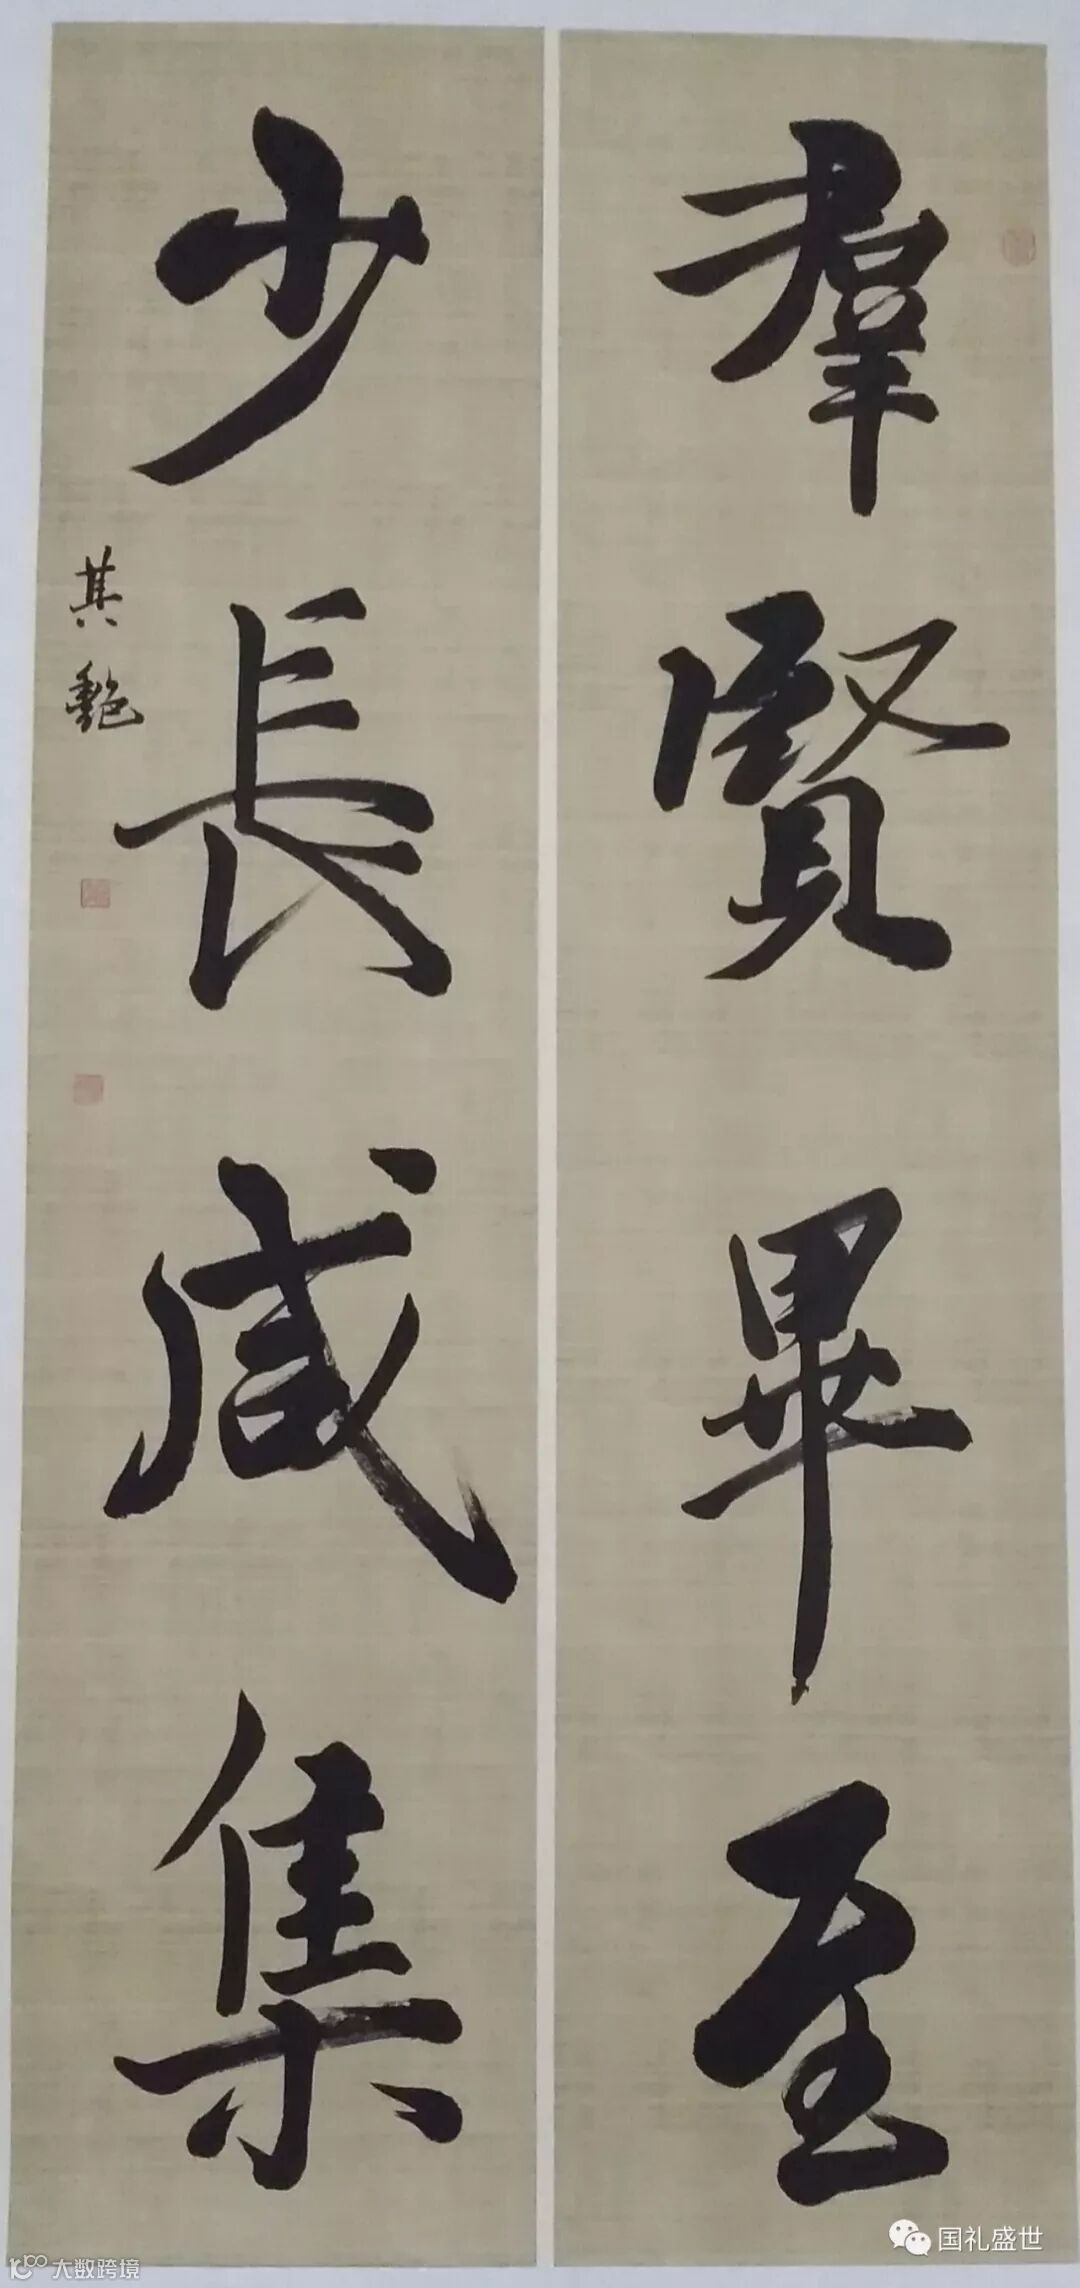 羣賢畢至
少長咸集
其艷
国礼盛世
大数跨境